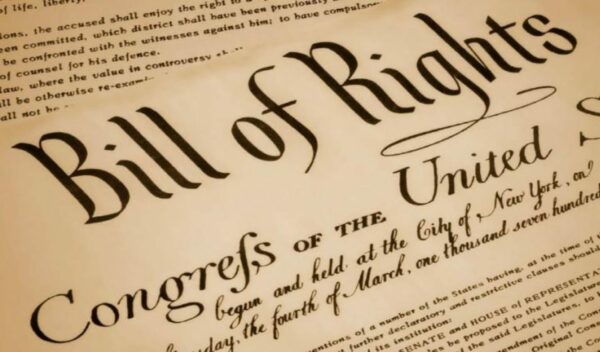 of life, liberty,
ions, the accused shall enjoy the right to a
been committed, which district shall have been previously
be confronted with the witnesses against him; to have compulsor
of counsel for his defence.
law, where the value in controversy
ll be otherwise re-exami
hall not be
Bill of Rights
Congreſs OF THE United S
begun and held at the City of New York, on
day, the fourth of March, one thousand seven hundred
ventions of a number of the States having, at the time of
further declaratory and restrictive clauses should
its institution:
SENATE and HOUSE of REPRESENTA
be proposed to the Legislature
the said Legislatures, to
Amendment of the Const
Original Cons